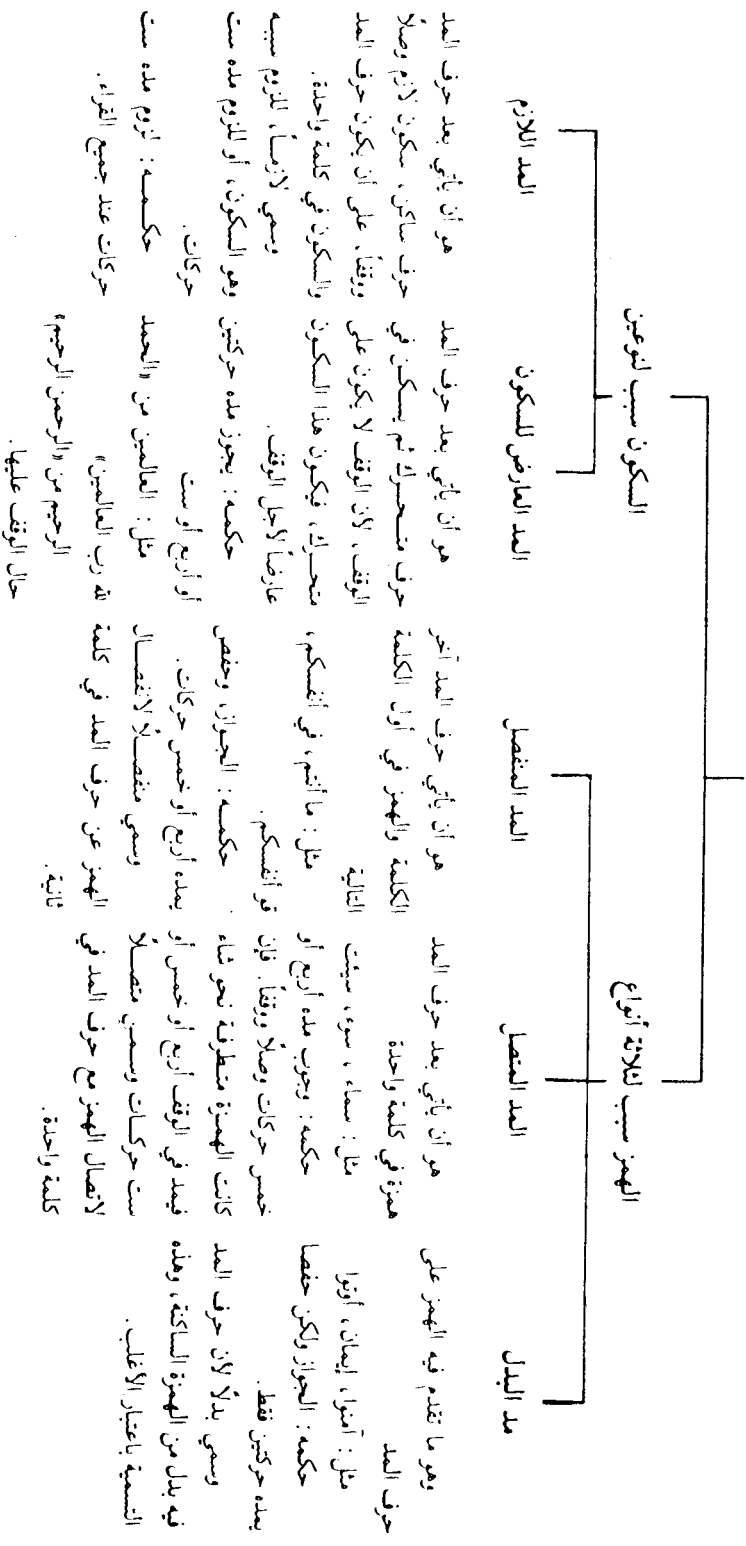 الهمز سبب لثلاثة أنواع
السكون سبب لنوعين
مد البدل
وهو ما تقدم فيه الهمز على
حرف المد
مثل: آمنوا، إيمان، أوتوا
حكمه: الجواز ولكن حفصا
يمده حركتين فقط.
وسمي بدلًا لأن حرف المد
فيه بدل من الهمزة الساكنة، وهذه
التسمية باعتبار الأغلب.
المد المتصل
هو أن يأتي بعد حرف المد
همزة في كلمة واحدة
مثل: سماء، سوء، سيئت
حكمه: وجوب مده أربع أو
خمس حركات وصلًا ووقفاً. فإن
كانت الهمزة متطرفة نحو شاء
فيمد في الوقف أربع أو خمس أو
ست حركات وسمي متصلًا
لاتصال الهمز مع حرف المد في
كلمة واحدة.
المد المنفصل
هو أن يأتي حرف المد آخر
الكلمة والهمز في أول الكلمة
التالية
مثل: ما أنتم، في أنفسكم،
قو أنفسكم.
حكمه: الجواز، وحفص
يمده أربع أو خمس حركات.
وسمي منفصلًا لانفصال
الهمز عن حرف المد في كلمة
ثانية.
المد العارض للسكون
هو أن يأتي بعد حرف المد
حرف متحرك ثم يسكن في
الوقف، لأن الوقف لا يكون على
متحرك، فيكون هذا السكون
عارضاً لأجل الوقف.
حكمه: يجوز مده حركتين
أو أربع أو ست
مثل: العالمين من «الحمد
لله رب العالمين»
الرحيم من «الرحمن الرحيم»
حال الوقف عليها.
المد اللازم
هو أن يأتي بعد حرف المد
حرف ساكن، سكون لازم وصلاً
ووقفاً، على أن يكون حرف المد
والسكون في كلمة واحدة.
وسمي لازمـاً، للزوم سببه
وهو السكون، أو للزوم مده ست
حركات.
حكمه: لزوم مده ست
حركات عند جميع القراء.